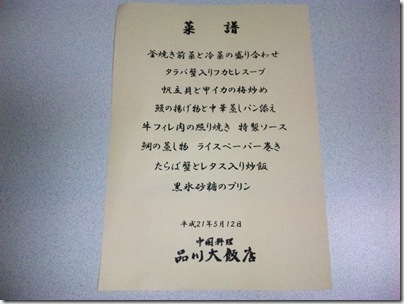 菜譜
釜焼き前菜と冷菜の盛り合わせ
タラバ蟹入りフカヒレスープ
帆立貝と甲イカの梅炒め
鰻の揚げ物と中華蒸しパン添え
牛フィレ肉の照り焼き 特製ソース
鯛の蒸し物 ライスペーパー巻き
たらば蟹とレタス入り炒飯
黒氷砂糖のプリン
平成21年5月12日
中国料理
品川大飯店